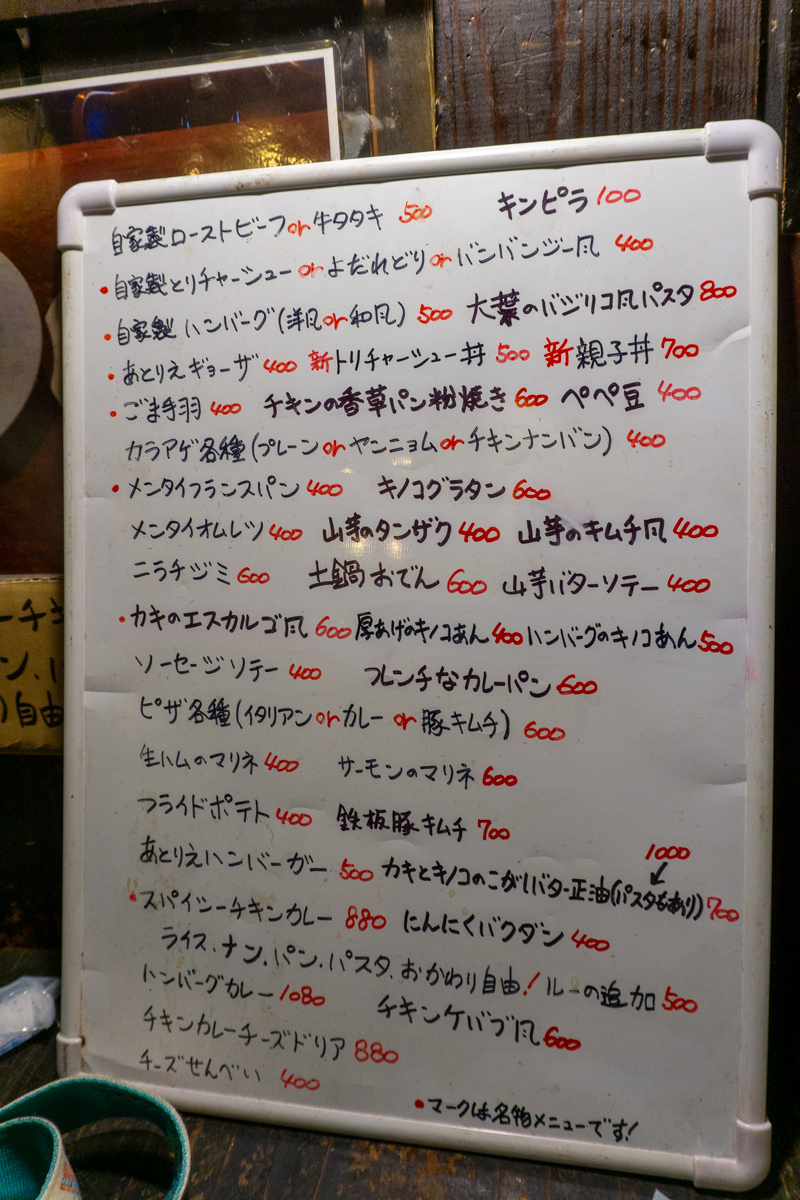 自家製ローストビーフor牛タタキ 500 キンピラ 100
・自家製とりチャーシューorよだれどりorバンバンジー風 400
・自家製ハンバーグ(洋風or和風) 500 大葉のバジリコ風パスタ 800
・あとりえギョーザ 400 新トリチャーシュー丼 500 新親子丼 700
・ごま手羽 400 チキンの香草パン粉焼き 600 ペペ豆 400
カラアゲ各種(プレーンorヤンニョムorチキンナンバン) 400
・メンタイフランスパン 400 キノコグラタン 600
メンタイオムレツ 400 山芋のタンザク 400 山芋のキムチ風 400
ニラチヂミ 600 土鍋おでん 600 山芋バターソテー 400
・カキのエスカルゴ風 600 厚あげのキノコあん 400 ハンバーグのキノコあん 500
ソーセージソテー 400 フレンチなカレーパン 600
ピザ各種(イタリアンorカレーor豚キムチ) 600
生ハムのマリネ 400 サーモンのマリネ 600
フライドポテト 400 鉄板豚キムチ 700
1000
あとりえハンバーガー 500 カキとキノコのこがしバター正油(パスタもあり) 700
・スパイシーチキンカレー 880 にんにくバクダン 400
ライス、ナン、パン、パスタ、おかわり自由! ルーの追加 500
ハンバーグカレー 1080 チキンケバブ風 600
チキンカレーチーズドリア 880
チーズせんべい 400
・マークは名物メニューです!
自由